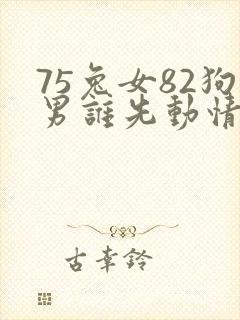 75兔女82狗
男誰先動情
古幸鈴